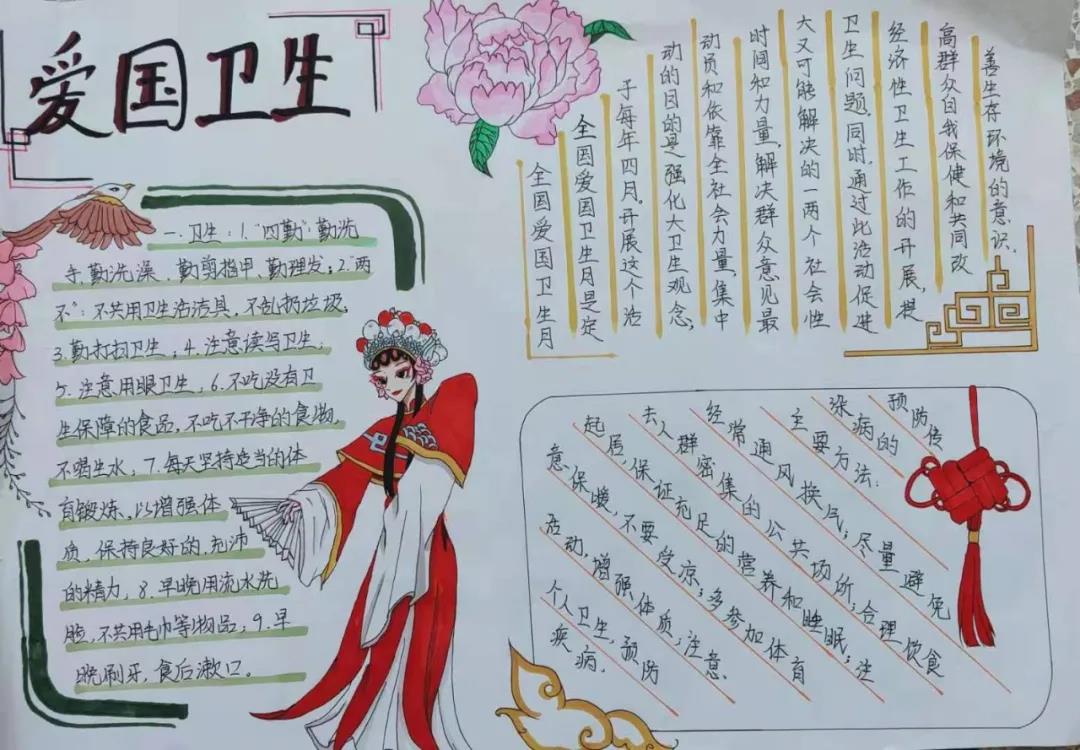 爱国卫生
一.卫生：1."四勤"：勤洗
手、勤洗澡、勤剪指甲、勤理发；2."两
不"：不共用卫生活洁具，不乱扔垃圾；
3.勤打扫卫生；4.注意读写卫生；
5.注意用眼卫生；6.不吃没有卫
生保障的食品，不吃不干净的食物，
不喝生水；7.每天坚持适当的体
育锻炼，以增强体
质，保持良好的，充沛
的精力，8.早晚用流水洗
脸，不共用毛巾等物品；9.早
晚刷牙，食后漱口。
全国爱国卫生月
全国爱国卫生月是定
于每年四月。开展这个活
动的目的是强化大卫生观念，
动员和依靠全社会力量，集中
时间和力量，解决群众意见最
大又可能解决的一两个社会性
卫生问题。同时，通过此活动促进
经济性卫生工作的开展，提
高群众自我保健和共同改
善生存环境的意识。
预防传
染病的
主要方法：
经常通风换气；尽量避免
去人群密集的公共场所；合理饮食
起居，保证充足的营养和睡眠；注
意保暖，不要受凉；多参加体育
活动，增强体质；注意
个人卫生，预防
疾病。